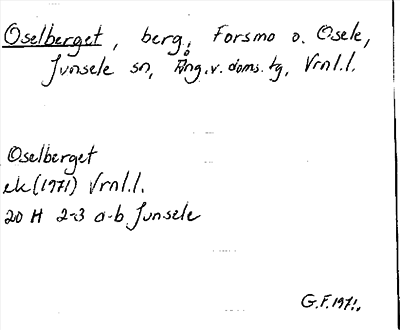 Oselberget, berg, Forsmo o. Osele,
Junsele sn, Ång.v. doms. tg, Vrnl.l.
Oselberget
ek (1971) Vrnl.l.
20 H 2-3 a-b Junsele
G.F. 1971.